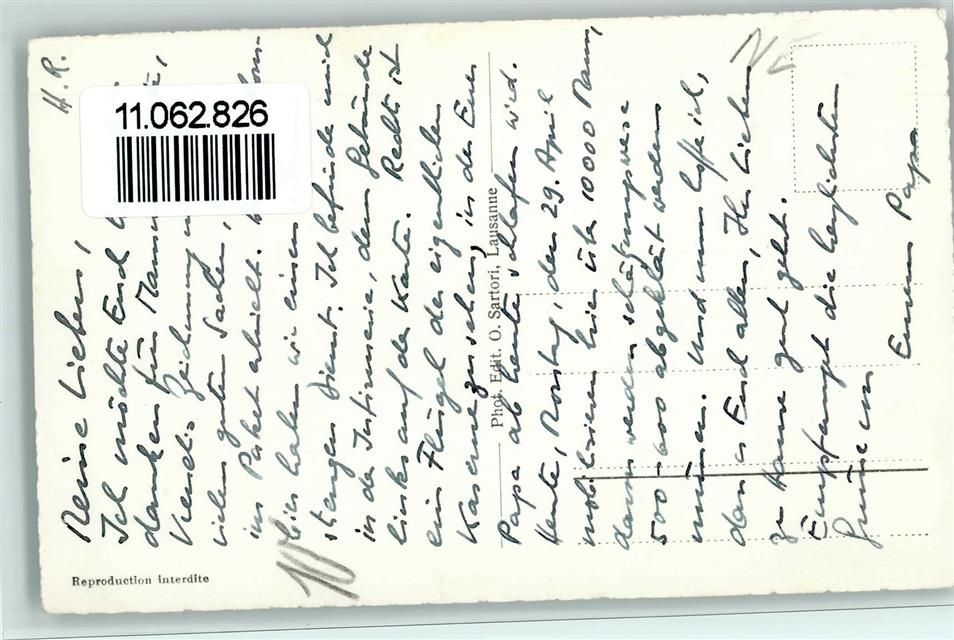 H. R.
Meine Lieben,
Ich möchte Euch
danken für Mamma
Zeichnung
vielen guten Sachen,
ins Paket schickt.
Hier haben wir einen
strengen Dienst. Ich befinde mich
in der Infirmerie, dem Gebäude
links auf der Karte. Rechts ist
ein Flügel der eigentlichen
Kaserne zu sehen, in der Euer
Papa ab heute schlafen wird.
Heute, den 29. April
mobilisieren hier über 10000 Mann,
davon werden schätzungsweise
500-600 abgeklärt werden
müssen. Und nun hoffe ich,
dass Euch allen, Ihr Lieben
zu Hause gut geht.
Empfangt die herzlichsten
Grüsse von
Eurem Papa
11.062.826
Phot. Edit. O. Sartori, Lausanne
Reproduction interdite
10